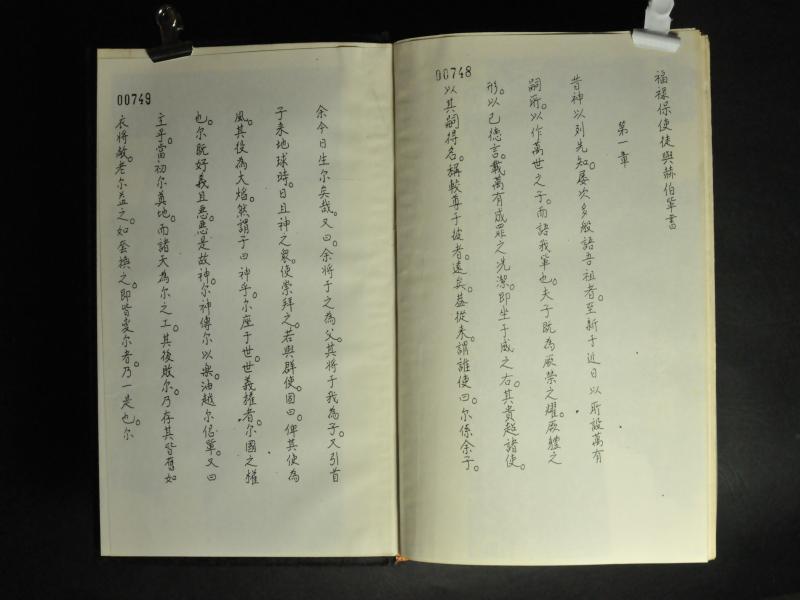 00748
福祿保使徒與赫伯輩書
第一章
昔神以列先知。屡次多般語吾祖者。至新于近日以所設萬有
嗣所。以作萬世之子。而語我軰也。夫子既為厥榮之耀。厥體之
形。以己德言。載萬有成罪之洗潔。即坐于威之右。其貴超諸使。
以其嗣得名。稱較尊于彼者。遠矣。盖從未謂誰使曰。尔係余子。
00749
余今日生尔矣哉。又曰。余將于之為父。其將于我為子。又引首
子来地球時。日且神之衆。使崇拜之。若與群使。固曰。俾其使為
風。其役為火焰。然謂子曰神乎。尔座于世世。義權者。尔國之權
也。尔既好義且惡惡。是故神。尔神傅尔以樂油越尔侶軰。又曰
主乎當初尔奠地。而諸天為尔之工。其後敗。尔乃存其皆舊如
衣將敝。老尔益之。如套換之。即皆变尔者。乃一是也。尔